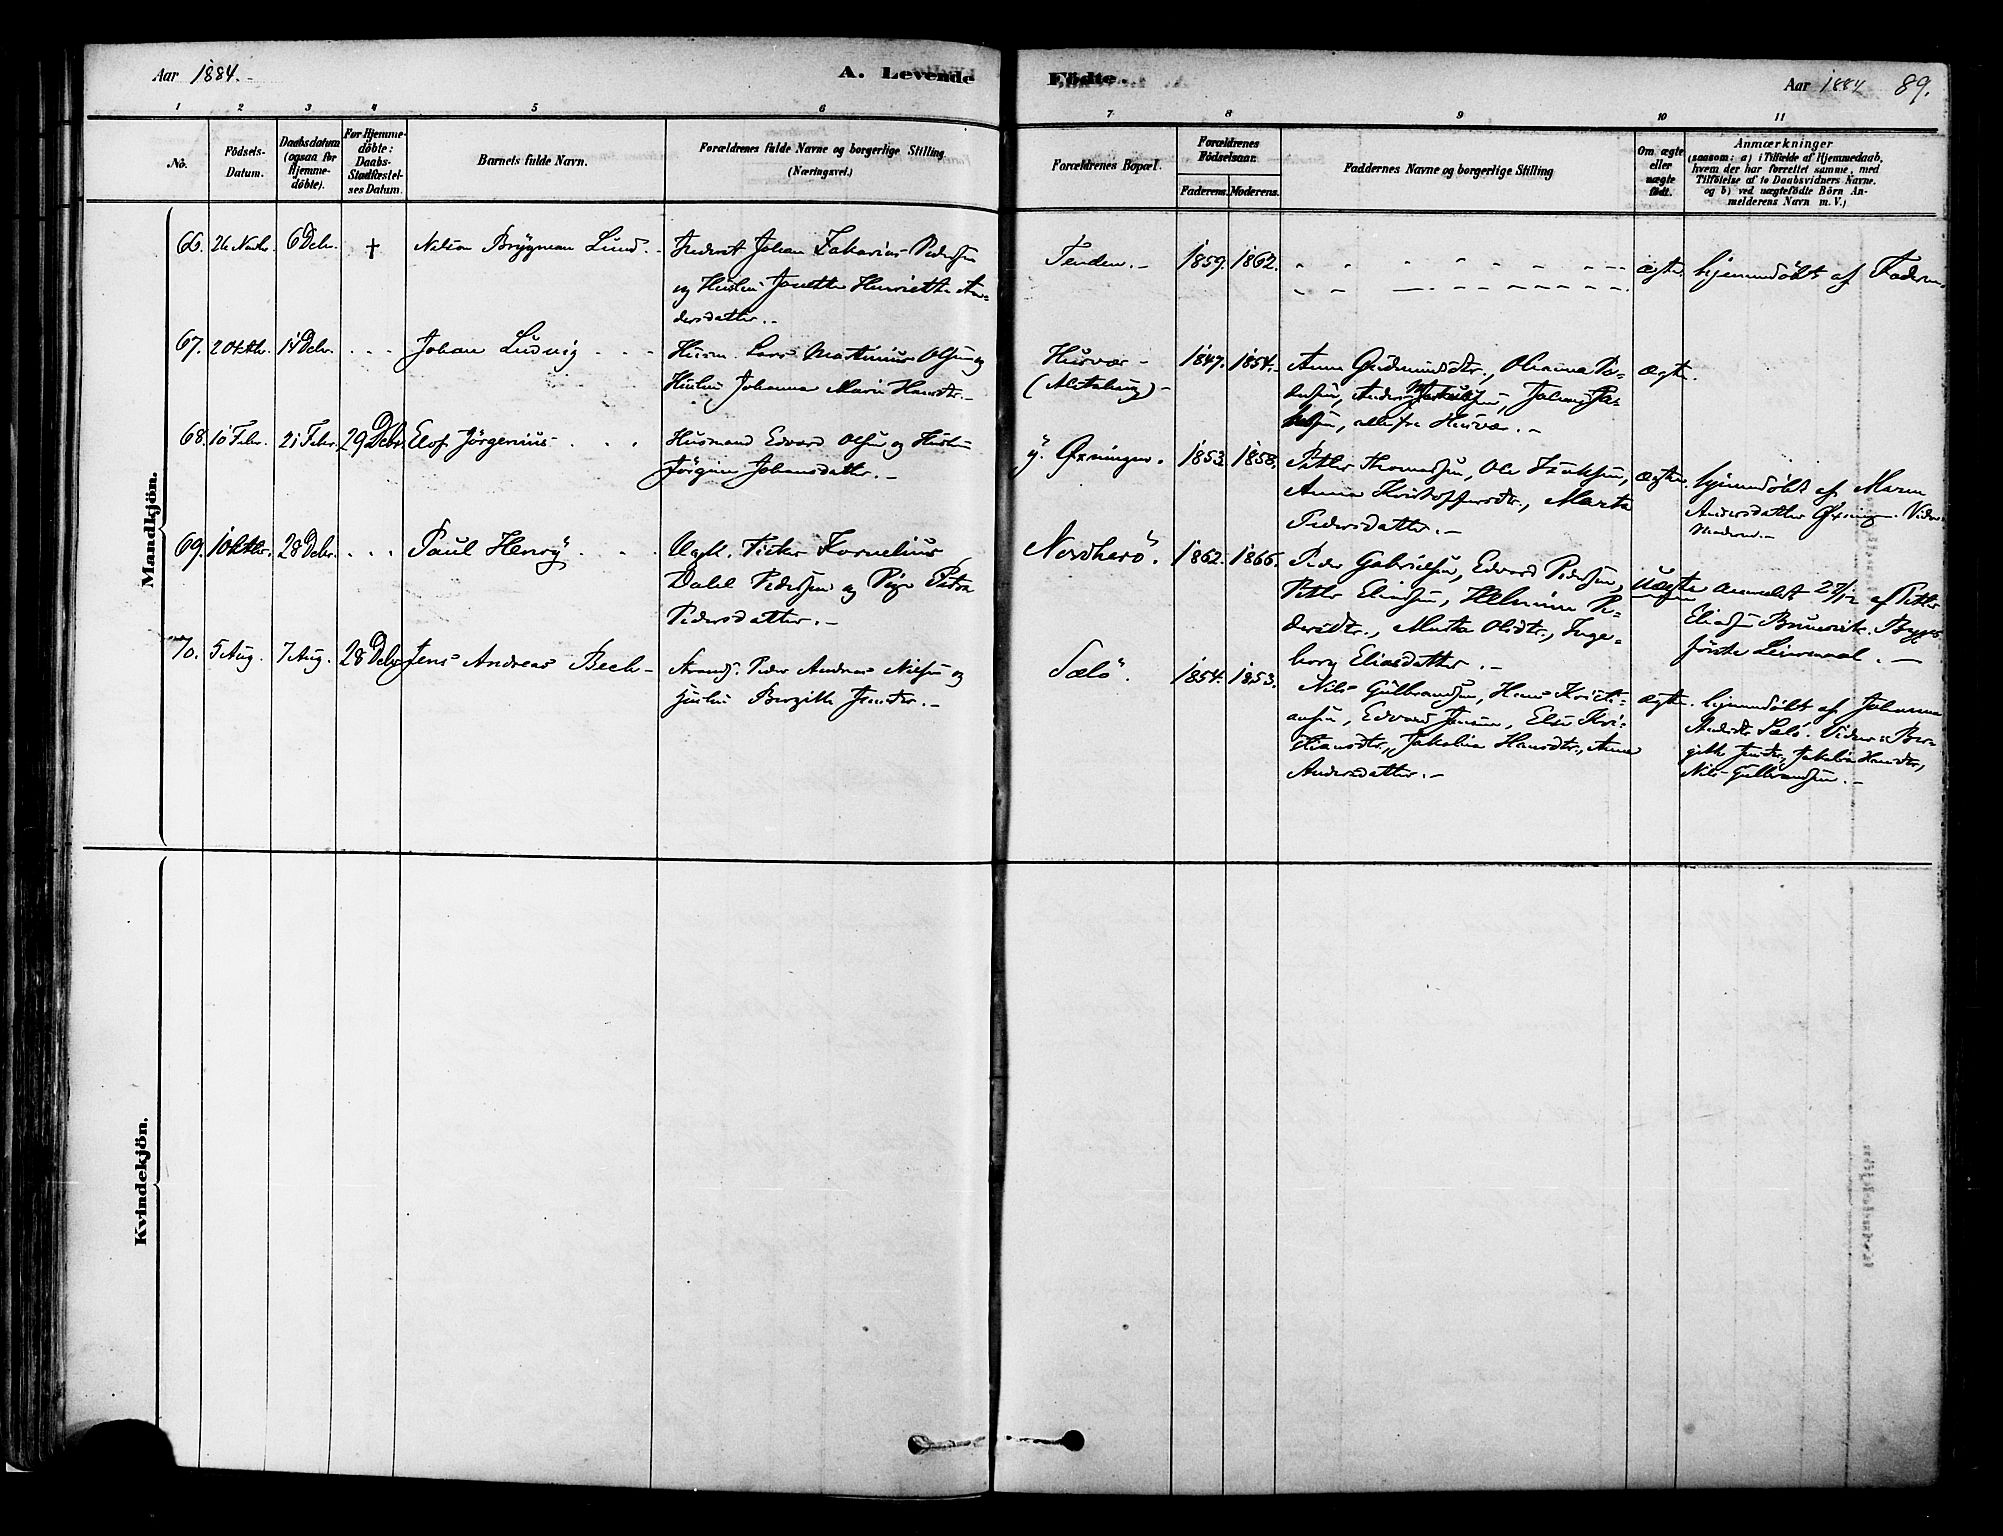 Aar 1884.
A. Levende Födte.
Aar 1884 89.
1 2 3 4 5 6 7 8 9 10 11
No.
Födsels-
Datum.
Daabsdatum
(ogsaa for
Hjemme-
döbte).
For Hjemme-
döbte:
Daabs-
Stadfæstel-
ses Datum.
Barnets fulde Navn.
Forældrenes fulde Navne og borgerlige Stilling
(Næringsvei.)
Forældrenes Bopæl.
Forældrenes
Födselsaar.
Faderens. Moderens.
Faddernes Navne og borgerlige Stilling
Om ægte
eller
uægte
født.
Anmærkninger
(saasom: a) i Tilfælde af Hjemmedaab,
hvem der har forrettet samme, med
Tilföielse af to Daabsvidners Navne.
og b) ved uægtefödte Börn An-
melderens Navn m. V.)
Mandkjön.
66. 26 Novbr. 6 Debr. † Nelson Brygman Lund
Johan Zakarias Pedersen
og Hustru Janette Henriette An-
dersdatter.
Tenden. 1859. 1862.
ægte. hjemmedöbt af Faderen.
67. 2 Oktbr. 14 Debr. Johan Ludvig
Husm. Lars Martinus Olsen og
Hustru Johanna Marie Hansdtr.
Husvær
1847. 1854.
Anna Gudmundsdtr.,
alle fra Husvær.
ægte.
68. 10 Febr. 21 Febr. 29 Debr. Elof Jörgenius
Husmand Edvard Olsen og Hustru
Jörgine Johansdatter.
y. Øxningen. 1853. 1858.
Petter Thomassen, Ole Isaksen,
Anna Kristoffersdtr., Marta
Pedersdatter.
ægte. hjemmedöbt af Maren
Andersdatter Øxningen.
69. 10 Oktbr. 28 Debr. Paul Henry
Ugk. Fisker Kornelius
Dahl Pedersen og Pige Petra
Pedersdatter.
Nordherö. 1862. 1866.
Peder Gabrielsen, Edvard Pedersen,
Petter Eliassen, Helmine Pe-
dersdtr., Marta Olsdtr., Inge-
borg Eliasdatter.
Uægte anmeldt 27/12 af Petter
Eliassen
förste Leiermaal.
70. 5 Aug. 7 Aug. 28 Debr. Jens Andreas Bech
Strands. Peder Andreas Nilsen og
Hustru Bergitte Jensdtr.
Sælö. 1854. 1853.
Nils Gulbrandsen, Hans Kristi-
ansen, Edvard Jensen, Else Kri-
stiansdtr., Jakobia Hansdtr., Anna
Andersdatter.
ægte. hjemmedöbt af Johanna
Andersdtr. Sælö. Vidner: Ber-
gitte Jensdtr., Jakobia Hansdtr.,
Nils Gulbrandsen.
Kvindekjön.